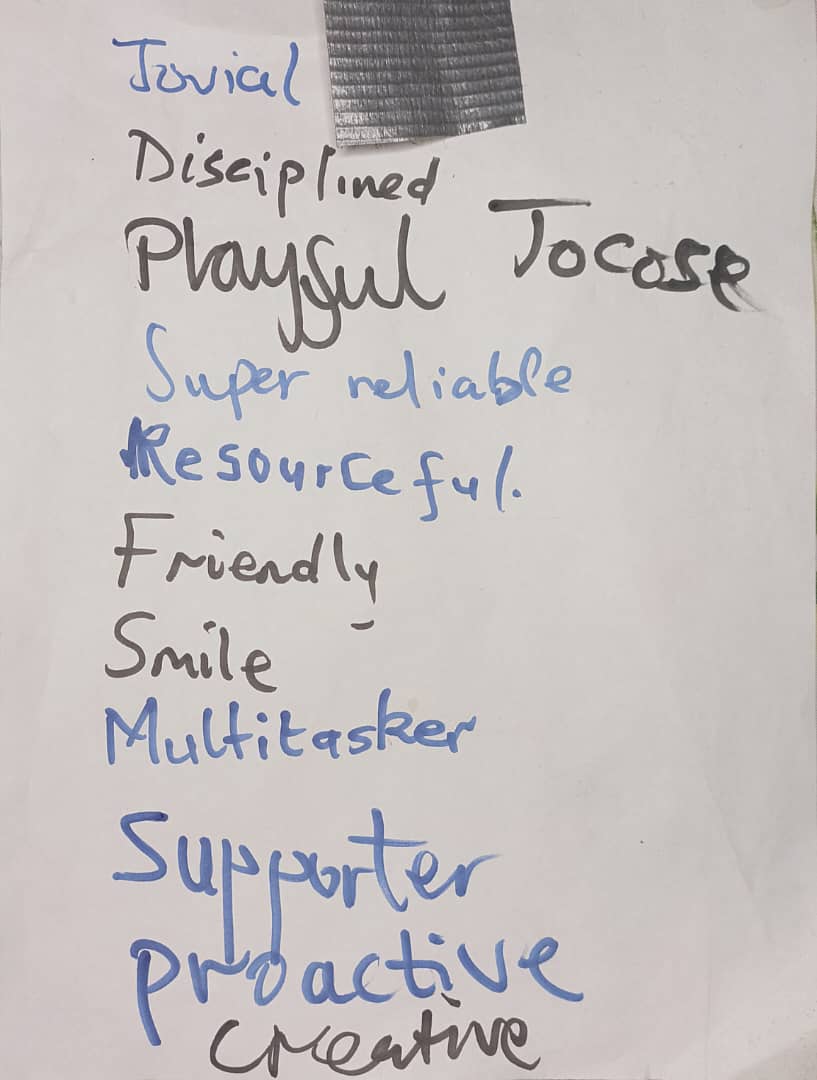 Jovial
Disciplined
Playful Jocose
Super reliable
Resourceful.
Friendly
Smile
Multitasker
Supporter
Proactive
Creative